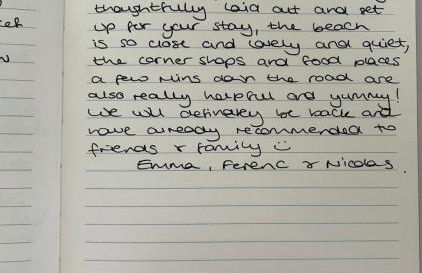 thoughtfully laid out and set
up for your stay, the beach
is so close and lovely and quiet,
the corner shops and food places
a few mins down the road are
also really helpful and yummy!
We will definetley be back and
have already recommended to
friends & family ☺
Emma, Ferenc & Nicolas.